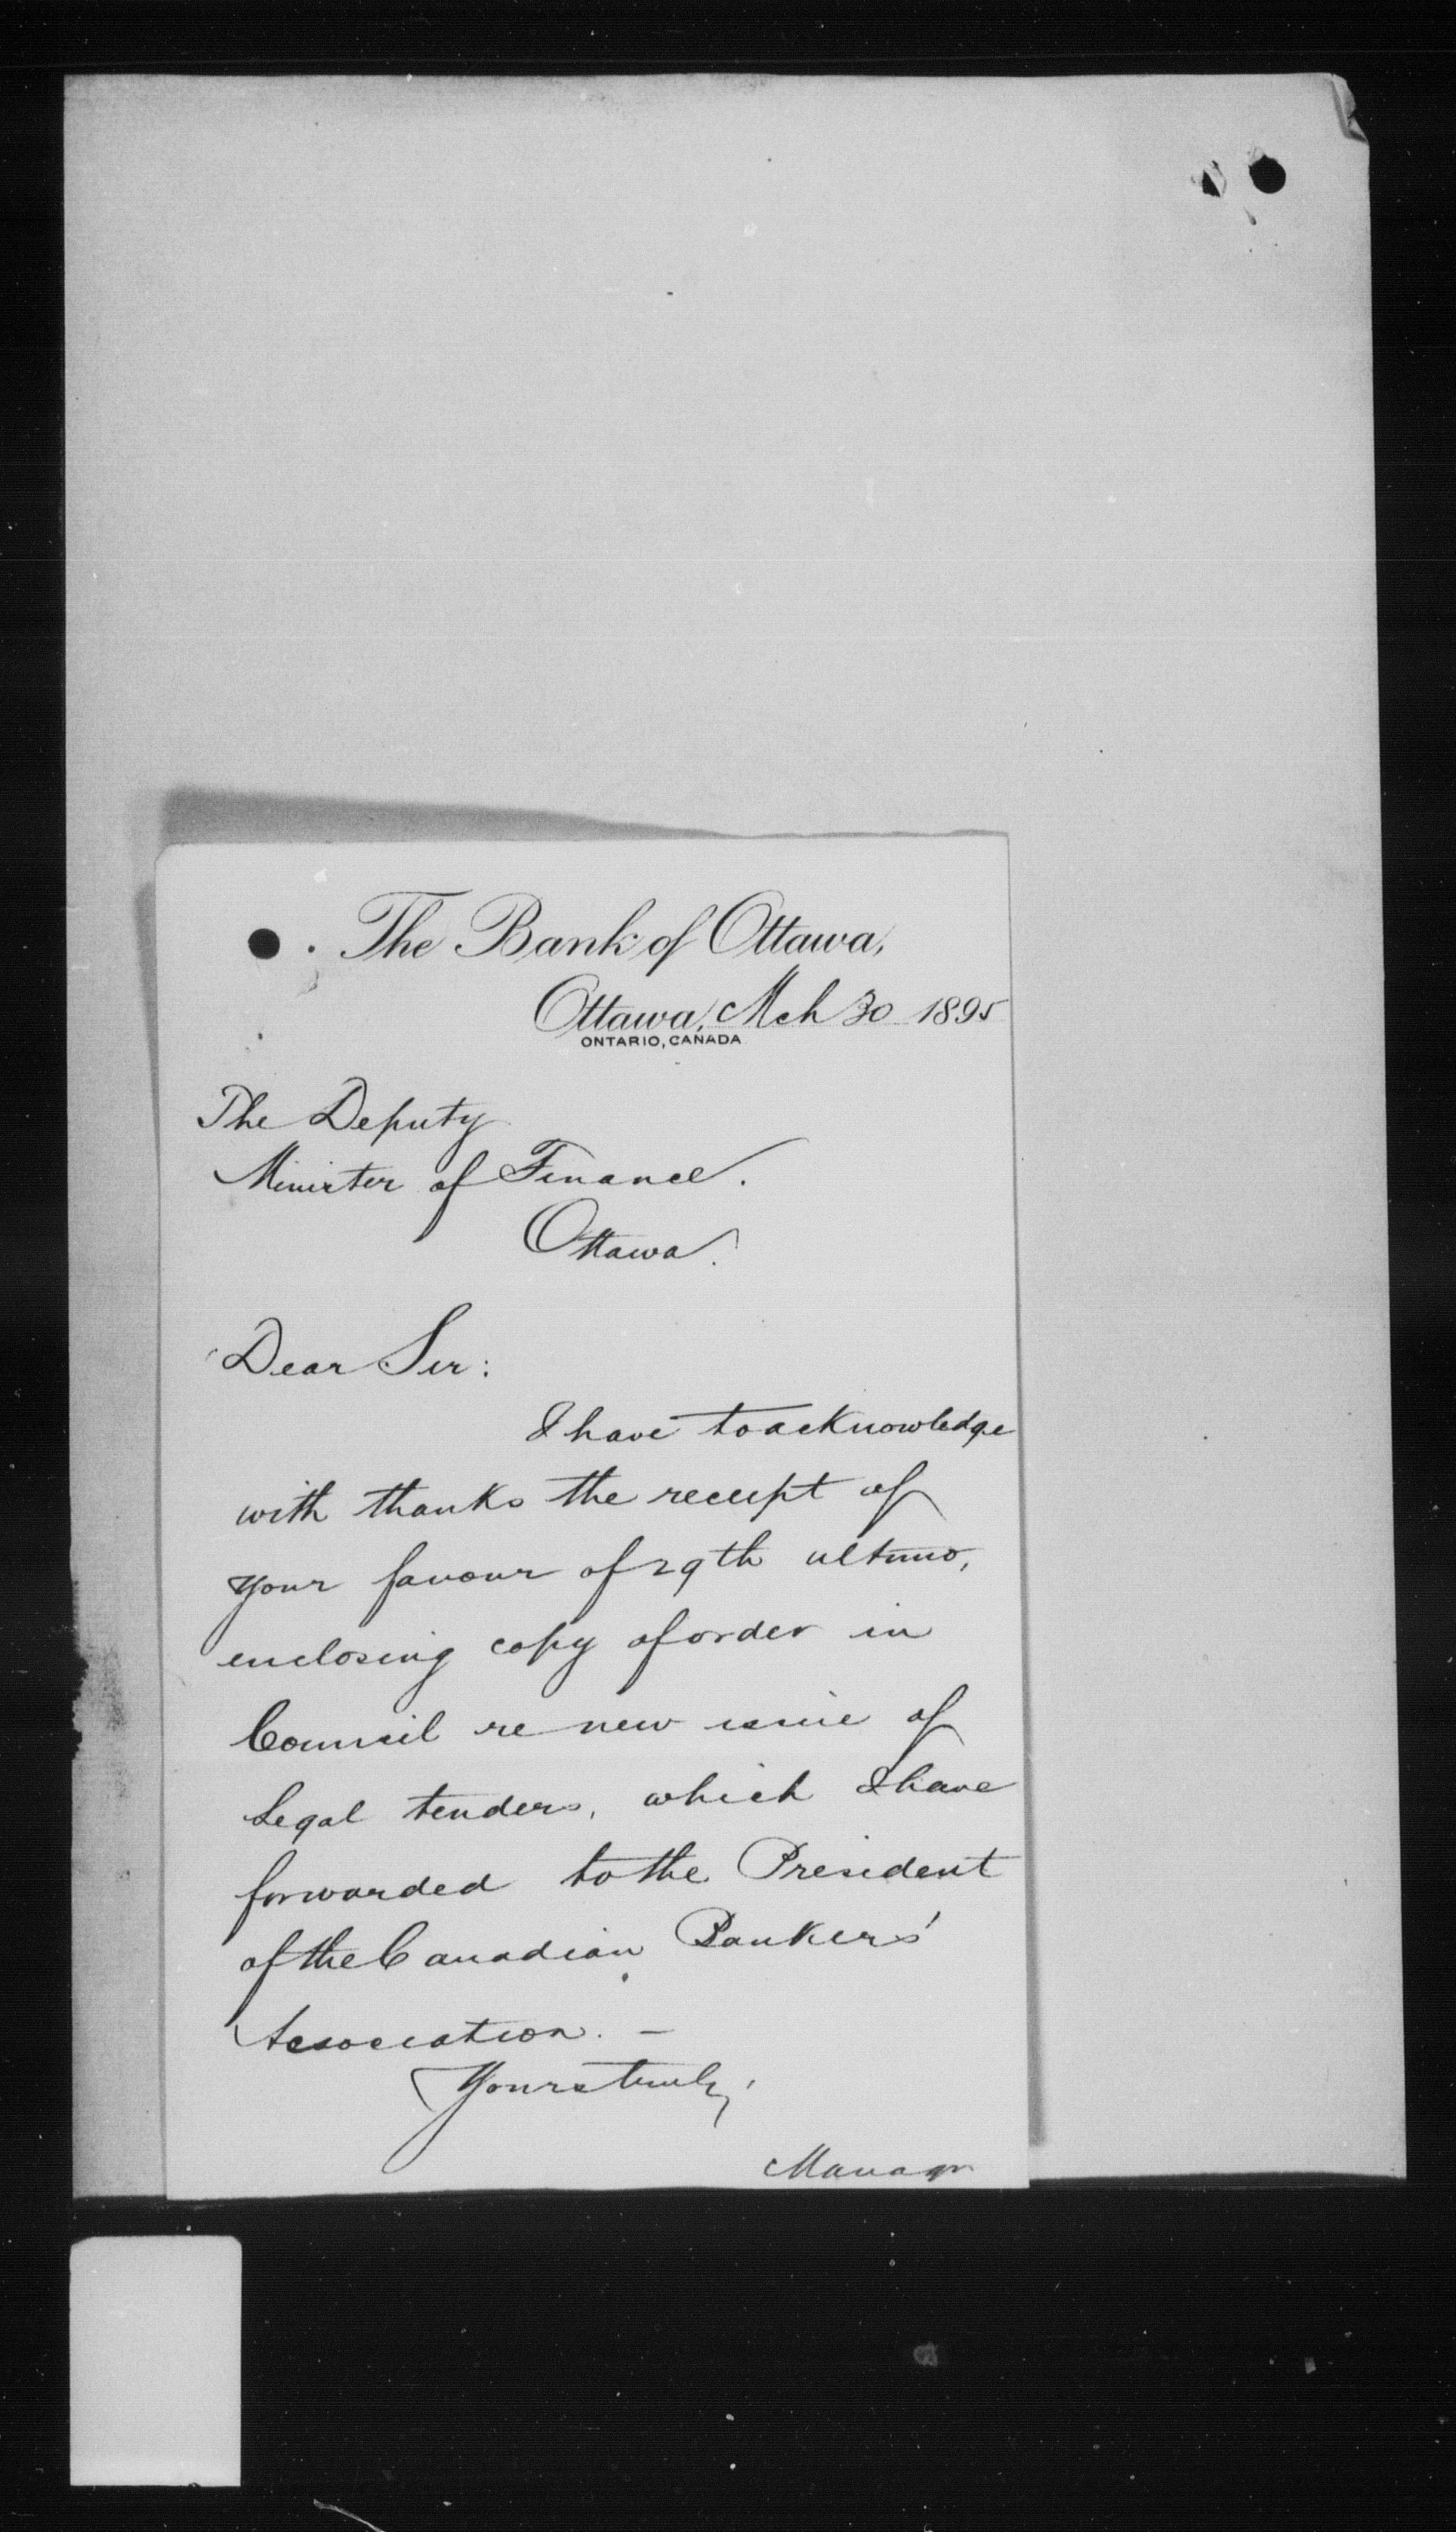 The Bank of Ottawa,
Ottawa, Mch 30 1895
ONTARIO, CANADA
The Deputy
Minister of Finance.
Ottawa.
Dear Sir:
I have to acknowledge
with thanks the receipt of
your favour of 29th ultimo,
enclosing copy of order in
Council re new issue of
Legal tenders, which I have
forwarded to the President
of the Canadian Bankers'
Association. —
Yours truly,
Manager